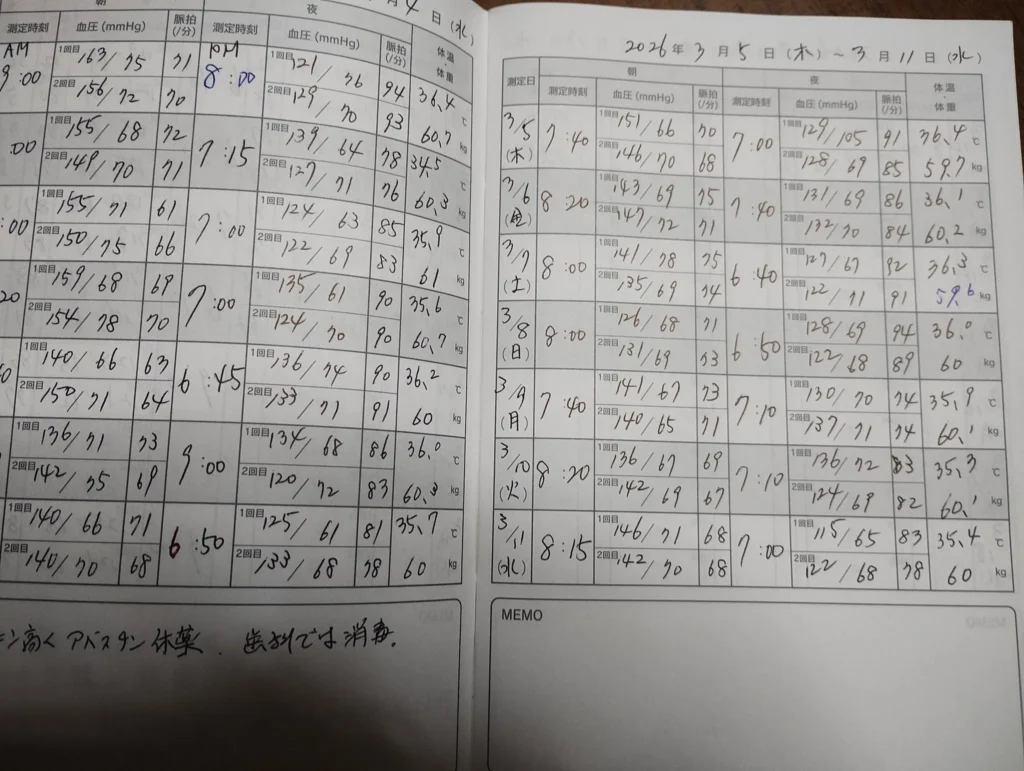 月4日(水)
朝 夜
測定時刻 血圧(mmHg) 脈拍(/分) 測定時刻 血圧(mmHg) 脈拍(/分) 体温・体重
AM 9:00 1回目 163/75 71 PM 8:00 1回目 121/76 94 36.4 ℃
2回目 156/72 70 2回目 129/70 93 60.7 kg
:00 1回目 155/68 72 7:15 1回目 139/64 78 34.5 ℃
2回目 149/70 71 2回目 127/71 76 60.3 kg
:00 1回目 155/71 61 7:00 1回目 124/63 85 35.9 ℃
2回目 150/75 66 2回目 122/69 83 61 kg
20 1回目 159/68 69 7:00 1回目 135/61 90 35.6 ℃
2回目 154/78 70 2回目 124/70 90 60.7 kg
0 1回目 140/66 63 6:45 1回目 136/74 90 36.2 ℃
2回目 150/71 64 2回目 133/71 91 60 kg
1回目 136/71 73 9:00 1回目 134/68 86 36.0 ℃
2回目 142/75 69 2回目 120/72 83 60.3 kg
1回目 140/66 71 6:50 1回目 125/61 81 35.7 ℃
2回目 140/70 68 2回目 133/68 78 60 kg
高く アバスチン休薬. 歯科では消毒.
2026年3月5日(木)~3月11日(水)
測定日 朝 夜 体温・体重
測定時刻 血圧(mmHg) 脈拍(/分) 測定時刻 血圧(mmHg) 脈拍(/分)
3/5(木) 7:40 1回目 151/66 70 7:00 1回目 129/105 91 36.4 ℃
2回目 146/70 68 2回目 128/69 85 59.7 kg
3/6(金) 8:20 1回目 143/69 75 7:40 1回目 131/69 86 36.1 ℃
2回目 147/72 71 2回目 132/70 84 60.2 kg
3/7(土) 8:00 1回目 141/78 75 6:40 1回目 127/67 92 36.3 ℃
2回目 135/69 74 2回目 122/71 91 59.6 kg
3/8(日) 8:00 1回目 126/68 71 6:50 1回目 128/69 94 36.0 ℃
2回目 131/69 73 2回目 122/68 89 60 kg
3/9(月) 7:40 1回目 141/67 73 7:10 1回目 130/70 74 35.9 ℃
2回目 140/65 71 2回目 137/71 74 60.1 kg
3/10(火) 8:20 1回目 136/67 69 7:10 1回目 136/72 83 35.3 ℃
2回目 142/69 67 2回目 124/69 82 60.1 kg
3/11(水) 8:15 1回目 146/71 68 7:00 1回目 115/65 83 35.4 ℃
2回目 142/70 68 2回目 122/68 78 60 kg
MEMO